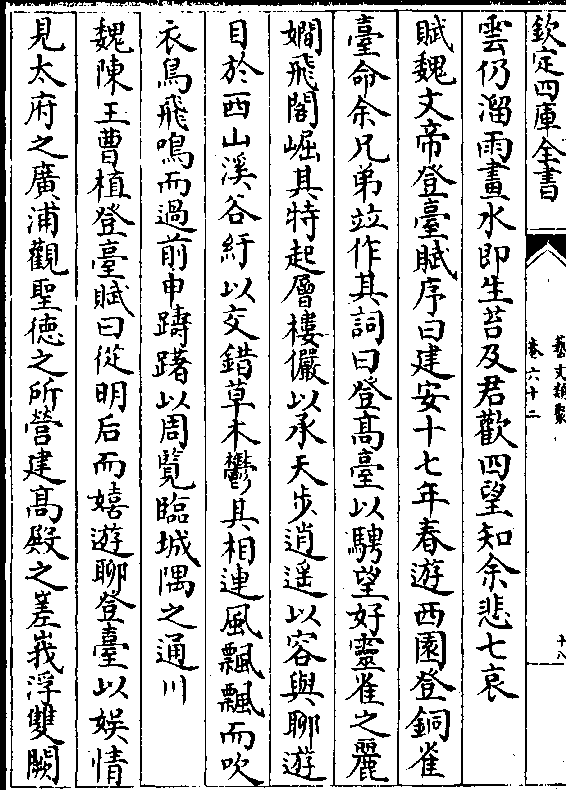 欽定四庫全書
藝文類聚
卷六十二
十八
雲仍溜雨畫水即生苔及君歡四望知余悲七哀
賦魏文帝登臺賦序曰建安十七年春遊西園登銅雀
臺命余兄弟竝作其詞曰登高臺以騁望好靈雀之麗
嫺飛閣崛其特起層樓儼以承天步逍遥以容與聊遊
目於西山溪谷紆以交錯草木鬱其相連風飄飄而吹
衣鳥飛鳴而過前申躊躇以周覧臨城隅之通川
魏陳王曹植登臺賦曰從明后而嬉遊聊登臺以娛情
見太府之廣浦觀聖徳之所營建髙殿之差峩浮雙闕